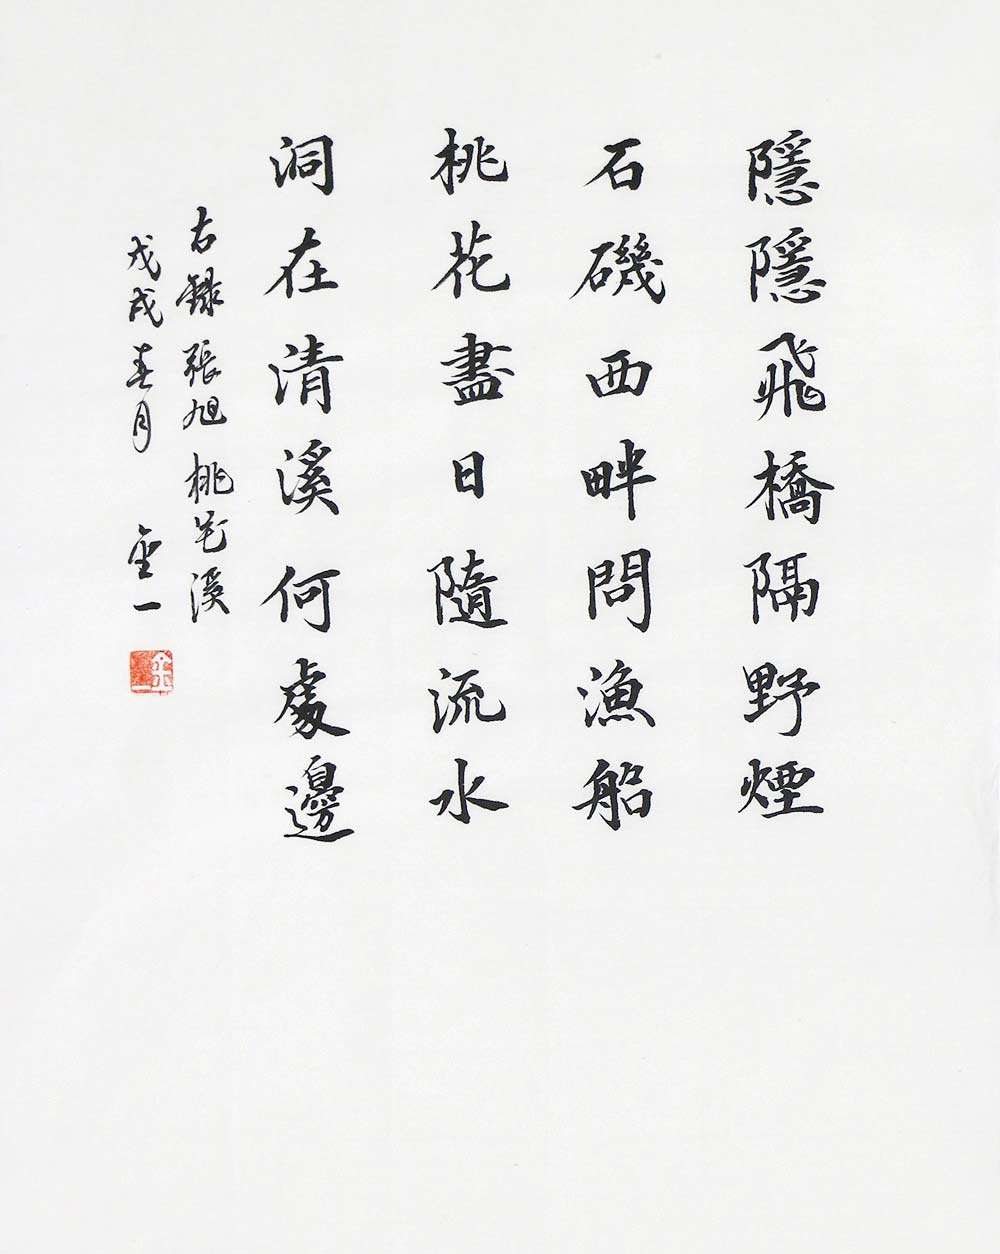 隱隱飛橋隔野煙
石磯西畔問漁船
桃花盡日隨流水
洞在清溪何處邊
右錄張旭桃花溪
戊戌春月 金一